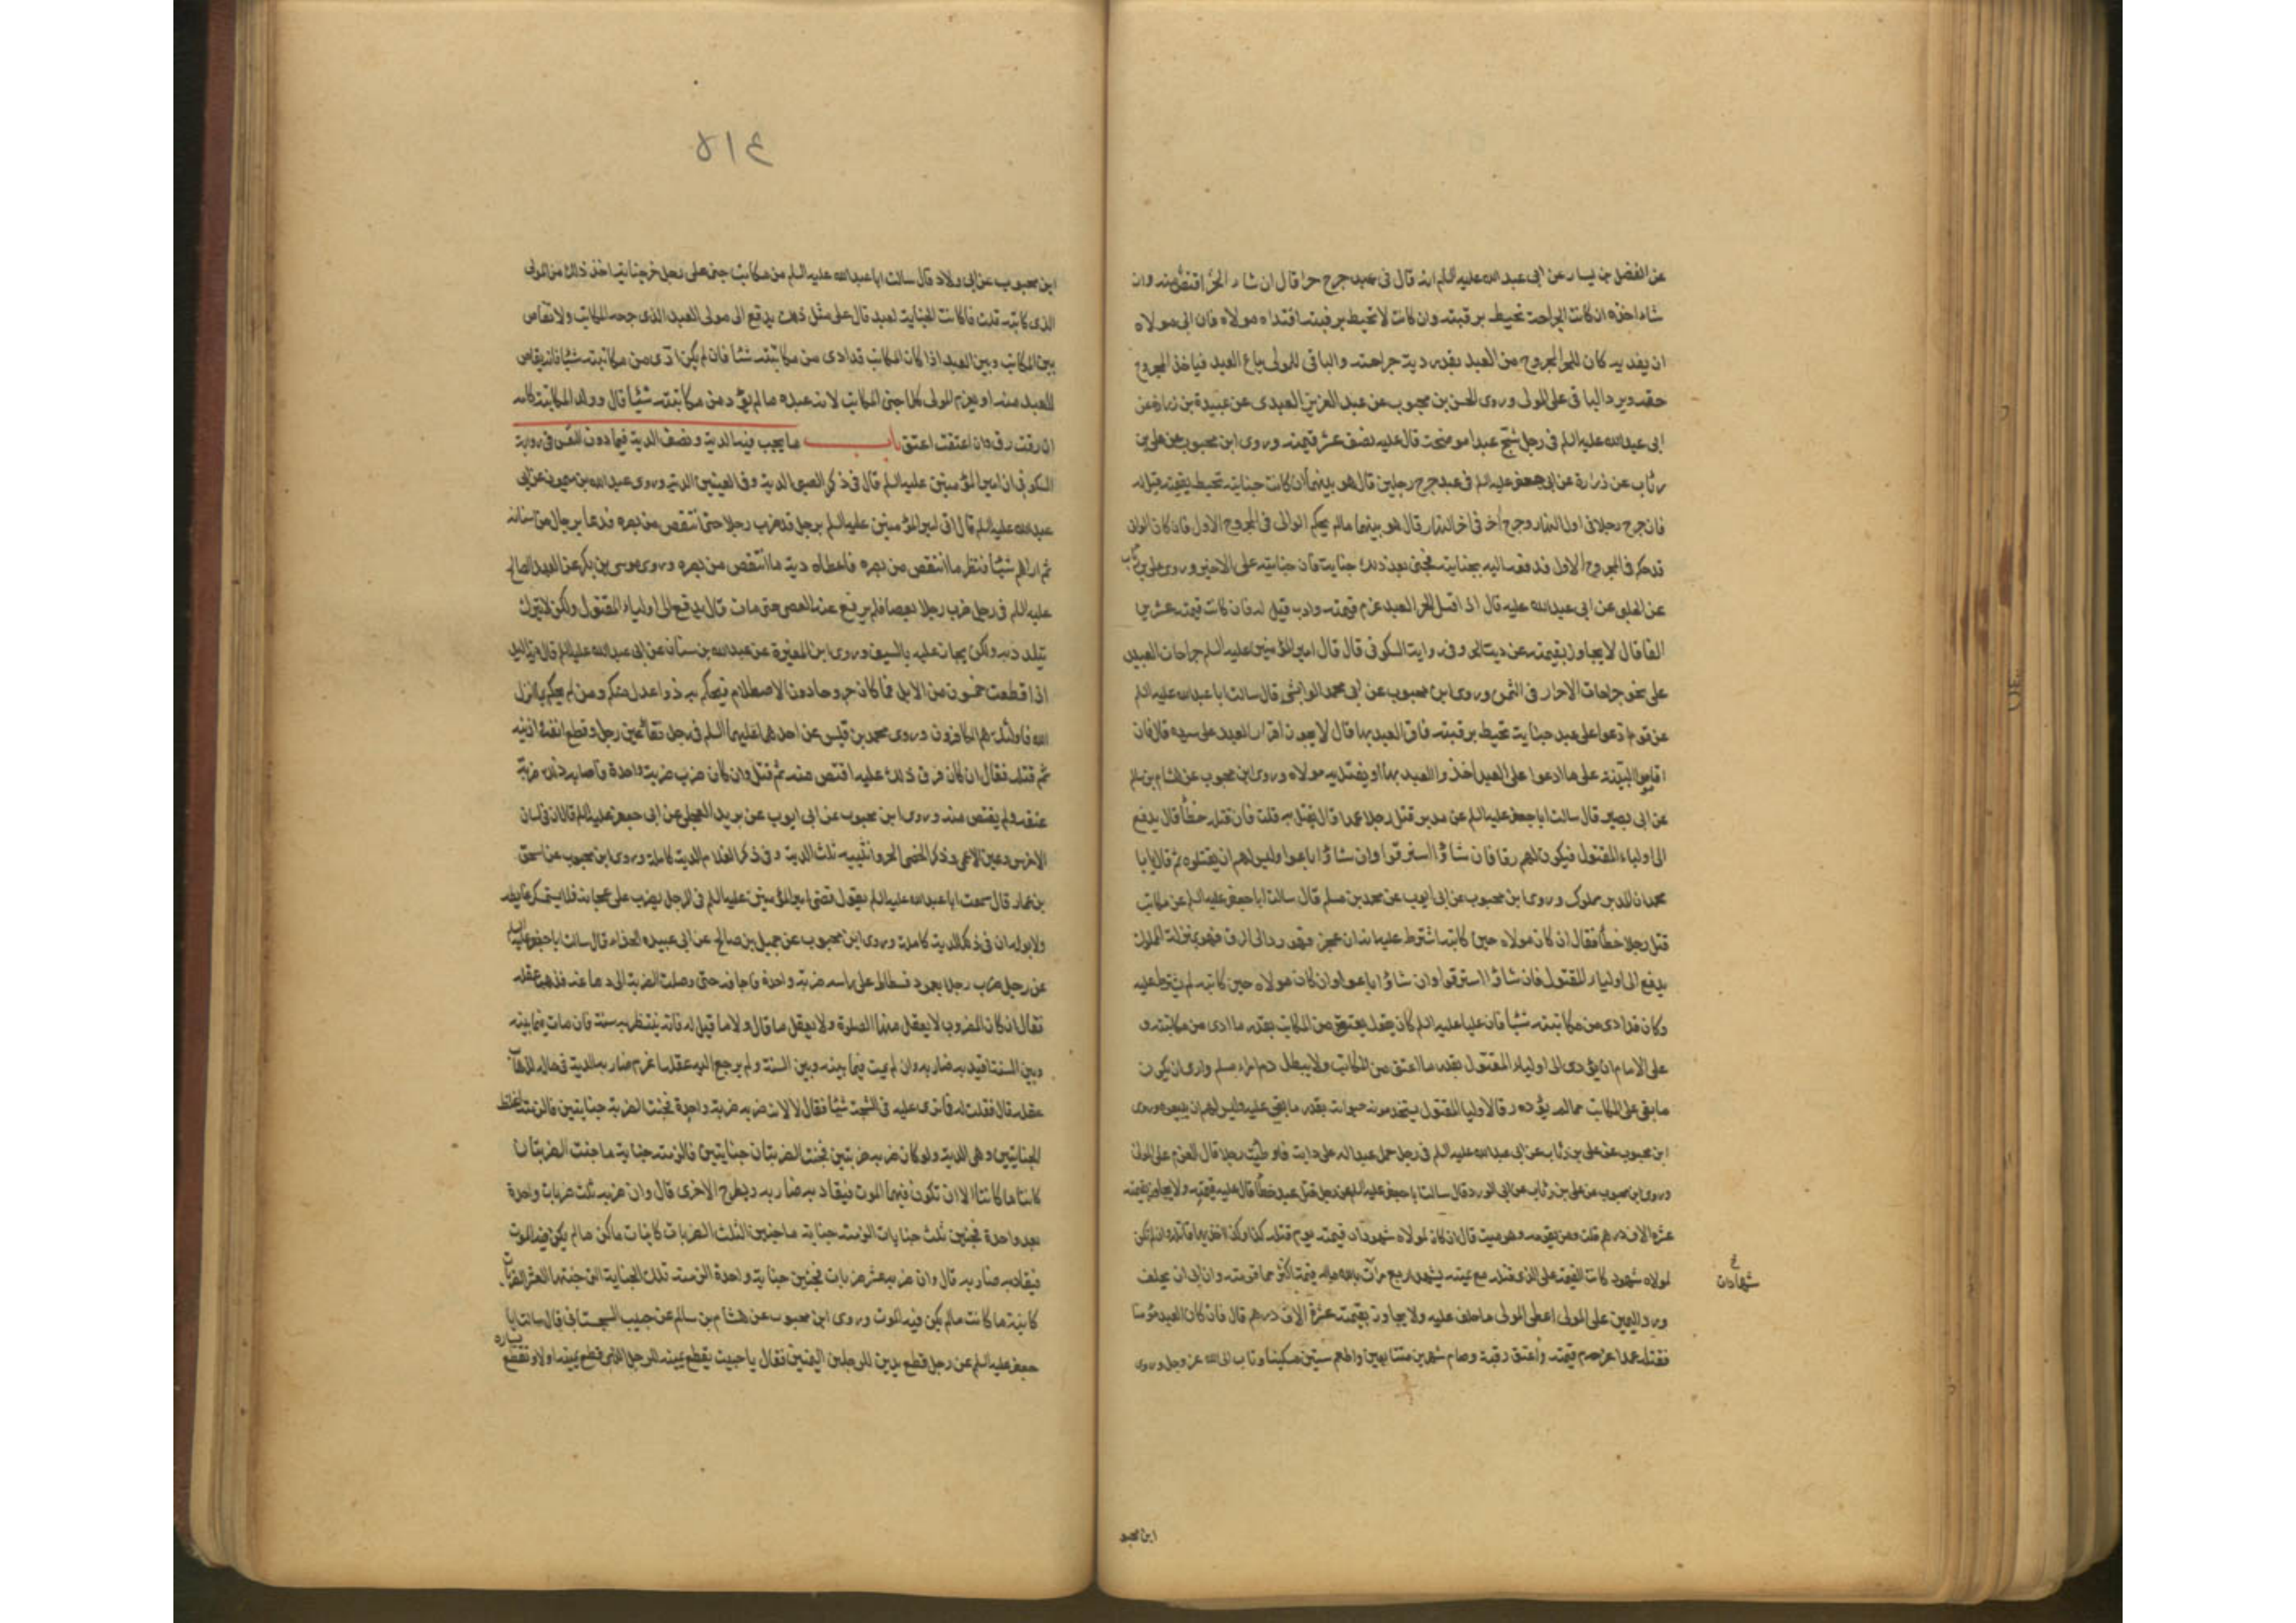 عن الفضل بن يسار عن ابى عبد الله عليه السلم انه قال فى عبد جرح حرا قال ان شاء الحر اقتص منه وان
شاء اخذه ان كانت الجراحة تحيط برقبته وان كانت لا تحيط برقبته افتداه مولاه فان ابى مولاه
ان يفديه كان للحر المجروح من العبد بقدر دية جراحته والباقى للمولى يباع العبد فياخذ المجروح
حقه ويرد الباقى على المولى وروى الحسن بن محبوب عن عبد العزيز العبدى عن عبيدة بن زرارة عن
ابى عبد الله عليه السلم فى رجل شج عبدا موضحة قال عليه نصف عشر قيمته وروى ابن محبوب عن على بن
رئاب عن زرارة عن ابى جعفر عليه السلم فى عبد جرح رجلين قال هو بينهما ان كانت جنايته تحيط بقيمته قيل له
فان جرح رجلا فى اول النهار وجرح آخر فى اخر النهار قال هو بينهما مالم يحكم الوالى فى المجروح الاول فان كان الوالى
قد حكم فى المجروح الاول فدفعه اليه بجنايته فجنى بعد ذلك جناية فان جنايته على الاخير وروى على بن رئاب
عن الحلبى عن ابى عبد الله عليه قال اذا قتل الحر العبد غرم قيمته وادب قيل له فان كانت قيمته عشرين
الفا قال لا يجاوز بقيمته عن دية الحر وفى رواية السكونى قال قال امير المؤمنين عليه السلم جراحات العبيد
على نحو جراحات الاحرار فى الثمن وروى ابن محبوب عن ابى محمد الوابشى قال سالت ابا عبد الله عليه السلم
عن قوم ادعوا على عبد جناية تحيط برقبته فاقر العبد بها قال لا يجوز اقرار العبد على سيده قال فان
اقاموا البينة على ما ادعوا على العبد اخذوا العبد بها او يفتديه مولاه وروى ابن محبوب عن هشام بن سالم
عن ابى بصير قال سالت ابا جعفر عليه السلم عن مدبر قتل رجلا عمدا قال يقتل به قلت فان قتله خطأ قال يدفع
الى اولياء المقتول فيكون لهم رقا فان شاؤا استرقوا وان شاؤا باعوا وليس لهم ان يقتلوه ثم قال يا با
محمد ان المدبر مملوك وروى ابن محبوب عن ابى ايوب عن محمد بن مسلم قال سالت ابا جعفر عليه السلم عن مكاتب
قتل رجلا خطأ فقال ان كان مولاه حين كاتبه اشترط عليه انه ان عجز فهو رد الى الرق فهو بمنزلة المملوك
يدفع الى اولياء المقتول فان شاؤا استرقوا وان شاؤا باعوا وان كان مولاه حين كاتبه لم يشترط عليه
وكان قد ادى من مكاتبته شيئا فان عليا عليه السلم كان يقول يعتق من المكاتب بقدر ما ادى من مكاتبته و
على الامام ان يؤدى الى اولياء المقتول بقدر ما اعتق من المكاتب ولا يبطل دم امرء مسلم وارى ان يكون
ما بقى على المكاتب مما لم يؤده رقا لاوليا المقتول يستخدمونه حيوته بقدر ما بقى عليه وليس لهم ان يبيعوه وروى
ابن محبوب عن على بن رئاب عن ابى عبد الله عليه السلم فى رجل حمل عبدا له على دابة فاوطئت رجلا قال الغرم على المولى
وروى ابن محبوب عن على بن رئاب عن ابى الورد قال سالت ابا جعفر عليه السلم عن رجل قتل عبدا خطأ قال عليه قيمته ولا يجاوز بقيمته
عشرة الاف درهم قلت ومن يقومه وهو ميت قال ان كان لمولاه شهود ان قيمته يوم قتله كذا وكذا اخذ بها قاتله وان لم يكن
لمولاه شهود كانت القيمة على الذى قتله مع يمينه يشهد اربع مرات بالله ماله قيمة اكثر مما قومته وان ابى ان يحلف
شهادات
ورد اليمين على المولى اعطى المولى ما حلف عليه ولا يجاوز بقيمته عشرة الاف درهم قال فان كان العبد مؤمنا
فقتله عمدا غرم قيمته واعتق رقبة وصام شهرين متتابعين واطعم ستين مسكينا وتاب الى الله عز وجل وروى
ابن محبو
٥١٤
ابن محبوب عن ابى ولاد قال سالت ابا عبد الله عليه السلم من مكاتب جنى على رجل حر جناية اخذ ذلك من المولى
الذى كاتبه قلت فان كانت الجناية لعبد قال على مثل ذلك يدفع الى مولى العبد الذى جرحه المكاتب ولا تقاص
بين المكاتب وبين العبد اذا كان المكاتب قد ادى من مكاتبته شيئا فان لم يكن ادى من مكاتبته شيئا فانه يقاص
للعبد منه او يغرم المولى كلما جنى المكاتب لانه عبده ما لم يؤد من مكاتبته شيئا قال وولد المكاتبة كامه
ان رقت رق وان اعتقت اعتق باب ما يجب فيه الدية ونصف الدية فيما دون النفس فى رواية
السكونى ان امير المؤمنين عليه السلم قال فى ذكر الصبى الدية وفى العينين الدية وروى عبد الله بن ميمون عن ابى
عبد الله عليه السلم قال اتى امير المؤمنين عليه السلم برجل قد ضرب رجلا حتى انتقص من بصره فدعا برجال من اسنانه
ثم اراهم شيئا فنظر ما انتقص من بصره فاعطاه دية ما انتقص من بصره وروى موسى بن بكر عن العبد الصالح
عليه السلم فى رجل ضرب رجلا بعصا فلم يرفع عنه العصى حتى مات قال يدفع الى اولياء المقتول ولكن لا يترك
يتلذذ به ولكن يجاز عليه بالسيف وروى ابن المغيرة عن عبد الله بن سنان عن ابى عبد الله عليه السلم قال دية اليد
اذا قطعت خمسون من الابل فما كان جروحا دون الاصطلام فيحكم به ذوا عدل منكم ومن لم يحكم بما انزل
الله فاولئك هم الكافرون وروى محمد بن قيس عن احدهما عليهما السلم فى رجل فقأ عين رجل وقطع انفه واذنيه
ثم قتله فقال ان كان فرق ذلك عليه اقتص منه ثم قتل وان كان ضرب ضربة واحدة فاصابه ذلك ضربت
عنقه ولم يقتص منه وروى ابن محبوب عن ابى ايوب عن بريد العجلى عن ابى جعفر عليه السلم قال ان فى لسان
الاخرس وعين الاعمى وذكر الخصى الحر وانثييه ثلث الدية وفى ذكر الغلام الدية كاملة وروى ابن محبوب عن اسحق
بن عمار قال سمعت ابا عبد الله عليه السلم يقول قضى امير المؤمنين عليه السلم فى الرجل يضرب على عجانه فلا يستمسك غايطه
ولا بوله ان فى ذلك الدية كاملة وروى ابن محبوب عن جميل بن صالح عن ابى عبيدة الحذاء قال سالت ابا جعفر عليه السلم
عن رجل ضرب رجلا بعمود فسطاط على راسه ضربة واحدة فاجافه حتى وصلت الضربة الى دماغه فذهب عقله
فقال ان كان المضروب لا يعقل منها الصلوة ولا يعقل ما قال ولا ما قيل له فانه ينتظر به سنة فان مات فيما بينه
وبين السنة اقيد به ضاربه وان لم يمت فيما بينه وبين السنة ولم يرجع اليه عقله اغرم ضاربه الدية فى ماله لذهاب
عقله قال فقلت له فما ترى عليه فى الشجة شيئا فقال لا لانه ضربه ضربة واحدة فجنت الضربة جنايتين فالزمته اغلظ
الجنايتين وهى الدية ولو كان ضربه ضربتين فجنت الضربتان جنايتين فالزمته جناية ما جنت الضربتان
كائنا ما كانتا الا ان تكون فيهما الموت فيقاد به ضاربه ويطرح الاخرى قال وان ضربه ثلث ضربات واحدة
بعد واحدة فجنين ثلث جنايات الزمته جناية ما جنين الثلث الضربات كاينات ما كن ما لم يكن فيه الموت
فيقاد به ضاربه قال وان ضربه عشر ضربات فجنين جناية واحدة الزمته تلك الجناية التى جنتها العشر الضربات
كاينة ما كانت ما لم يكن فيه الموت وروى ابن محبوب عن هشام بن سالم عن حبيب السجستانى قال سالت ابا
جعفر عليه السلم عن رجل قطع يدين للرجلين اليمنين فقال يا حبيب يقطع يمينه للرجل الذى قطع يمينه اولا وتقطع يساره